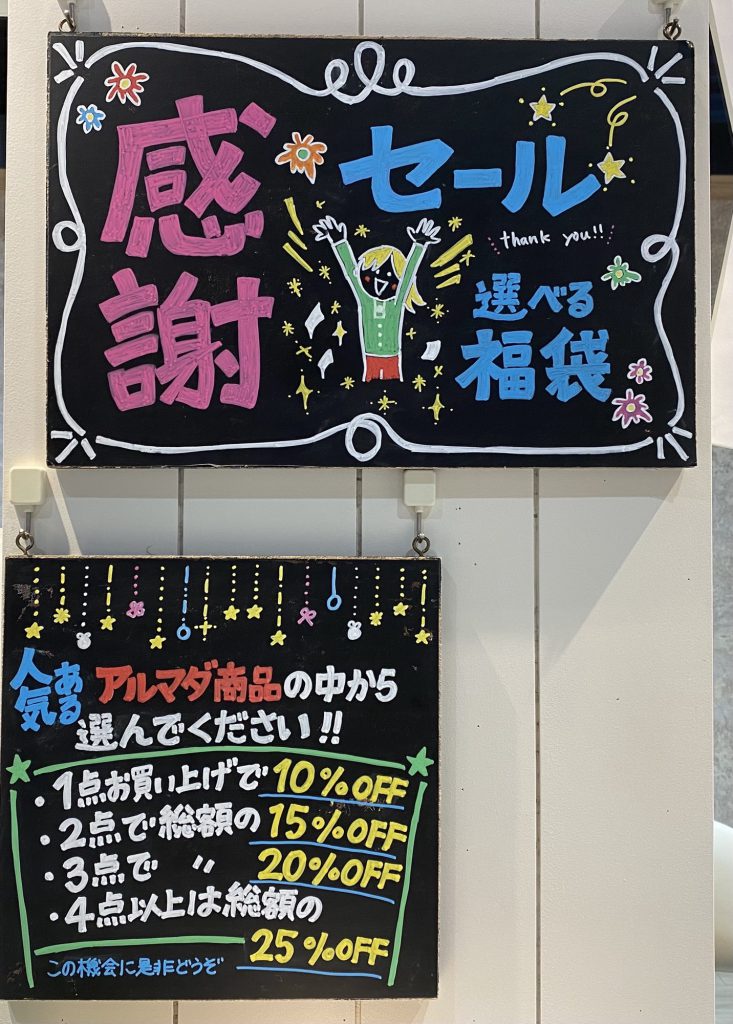 感謝
セール
thank you!!
選べる
福袋
人気ある アルマダ商品の中から
選んでください!!
・1点お買い上げで 10%OFF
・2点で総額の 15%OFF
・3点で 〃 20%OFF
・4点以上は総額の
25%OFF
この機会に是非どうぞ